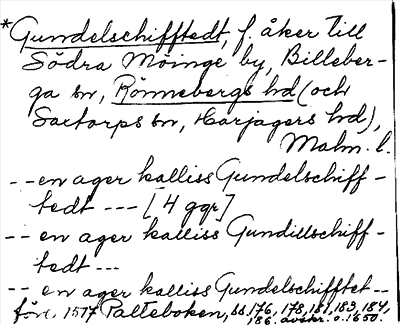 *Gundelschifftedt, f. åker till
Södra Möinge by, Billeber-
ga sn, Rönnebergs hd (och
Saxtorps sn, Harjagers hd),
Malm. l.
-- en ager kalliss Gundelschiff-
tedt --- [4 ggr]
-- en ager kalliss Gundillschiff-
tedt ---
-- en ager kalliss Gundelschifftet --
förl. 1517 Palteboken, ss. 176, 178, 181, 183, 184,
186. avskr. c. 1650.